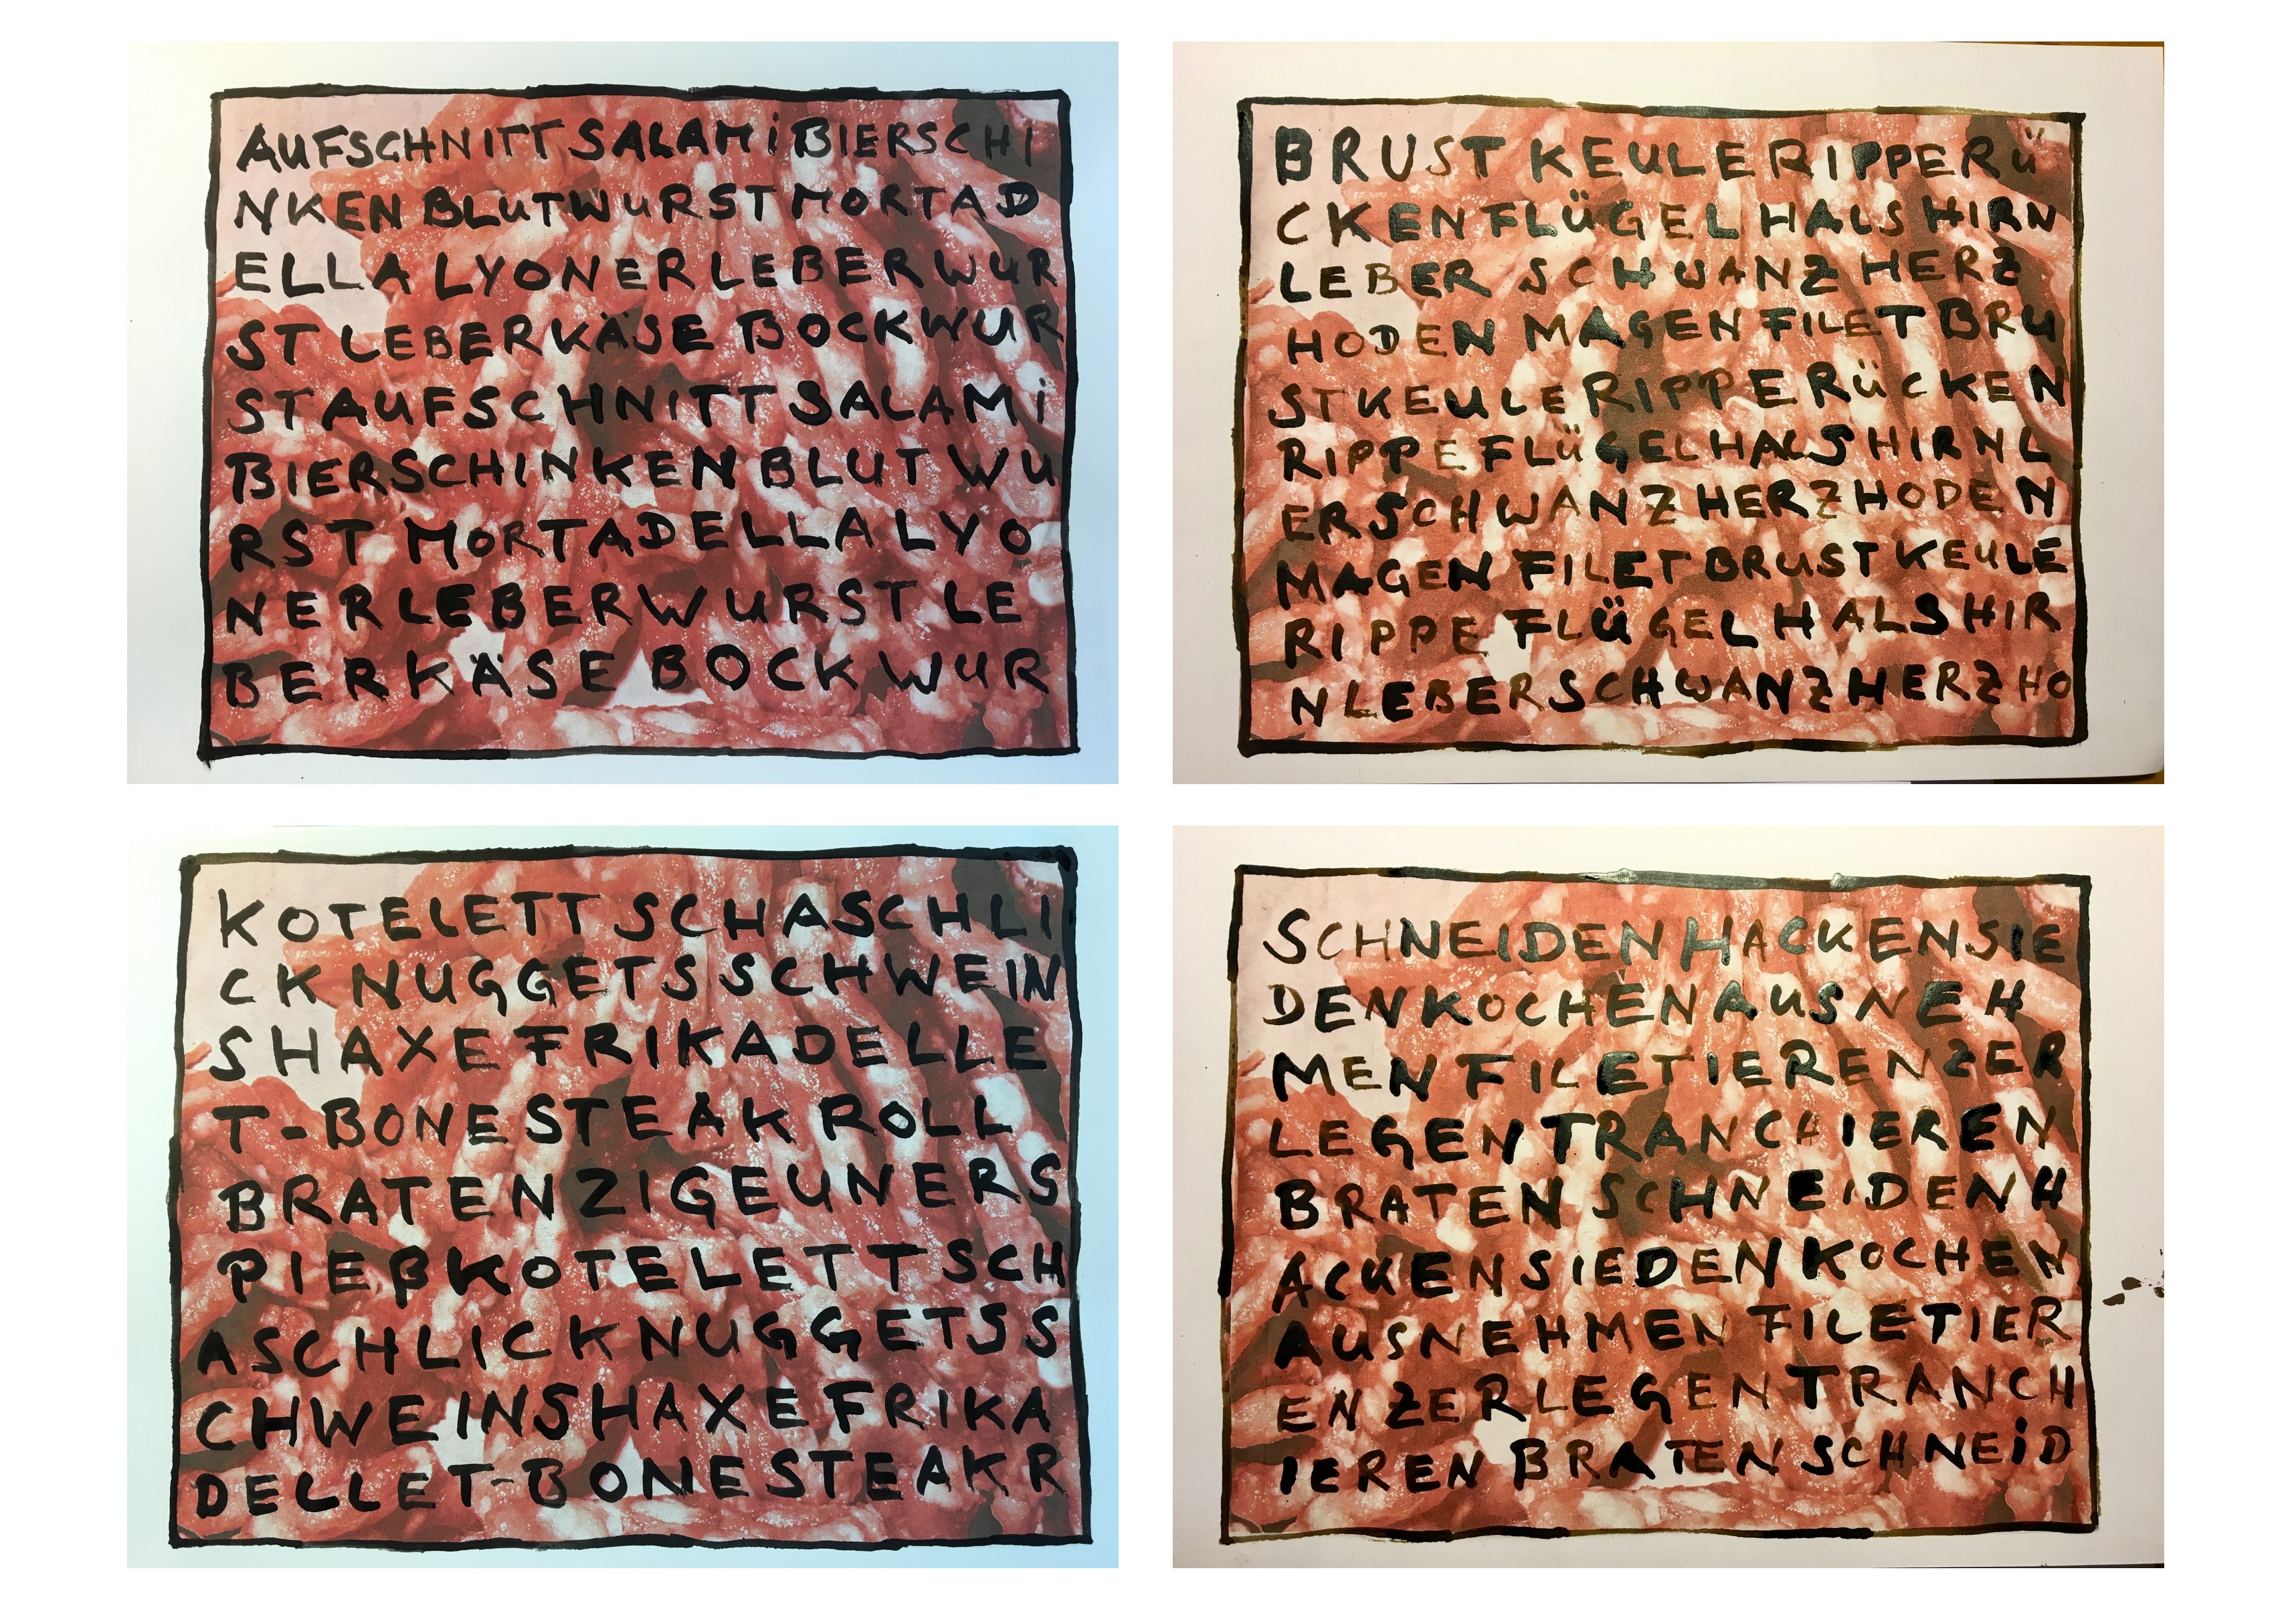 AUFSCHNITT SALAMI BIERSCHI
NKEN BLUTWURST MORTAD
ELLA LYONER LEBERWUR
ST LEBERKÄSE BOCKWUR
STAUFSCHNITT SALAMI
BIERSCHINKEN BLUTWU
RST MORTADELLA LYO
NERLEBERWURST LE
BERKÄSE BOCKWUR
BRUST KEULE RIPPE RÜ
CKEN FLÜGEL HALS HIRN
LEBER SCHWANZ HERZ
HODEN MAGEN FILET BRU
STKEULE RIPPE RÜCKEN
RIPPE FLÜGEL HALS HIRN L
ERSCHWANZ HERZ HODEN
MAGEN FILET BRUST KEULE
RIPPE FLÜGEL HALS HIR
NLEBERSCHWANZHERZHO
KOTELETT SCHASCHLI
CK NUGGETS SCHWEIN
SHAXE FRIKADELLE
T-BONESTEAK ROLL
BRATEN ZIGEUNERS
PIEßKOTELETT SCH
ASCHLICK NUGGETS S
CHWEINSHAXE FRIKA
DELLET-BONESTEAK R
SCHNEIDEN HACKEN SIE
DEN KOCHEN AUSNEH
MEN FILETIEREN ZER
LEGEN TRANCHIEREN
BRATEN SCHNEIDEN H
ACKEN SIEDEN KOCHEN
AUSNEHMEN FILETIER
EN ZERLEGEN TRANCH
IEREN BRATEN SCHNEID